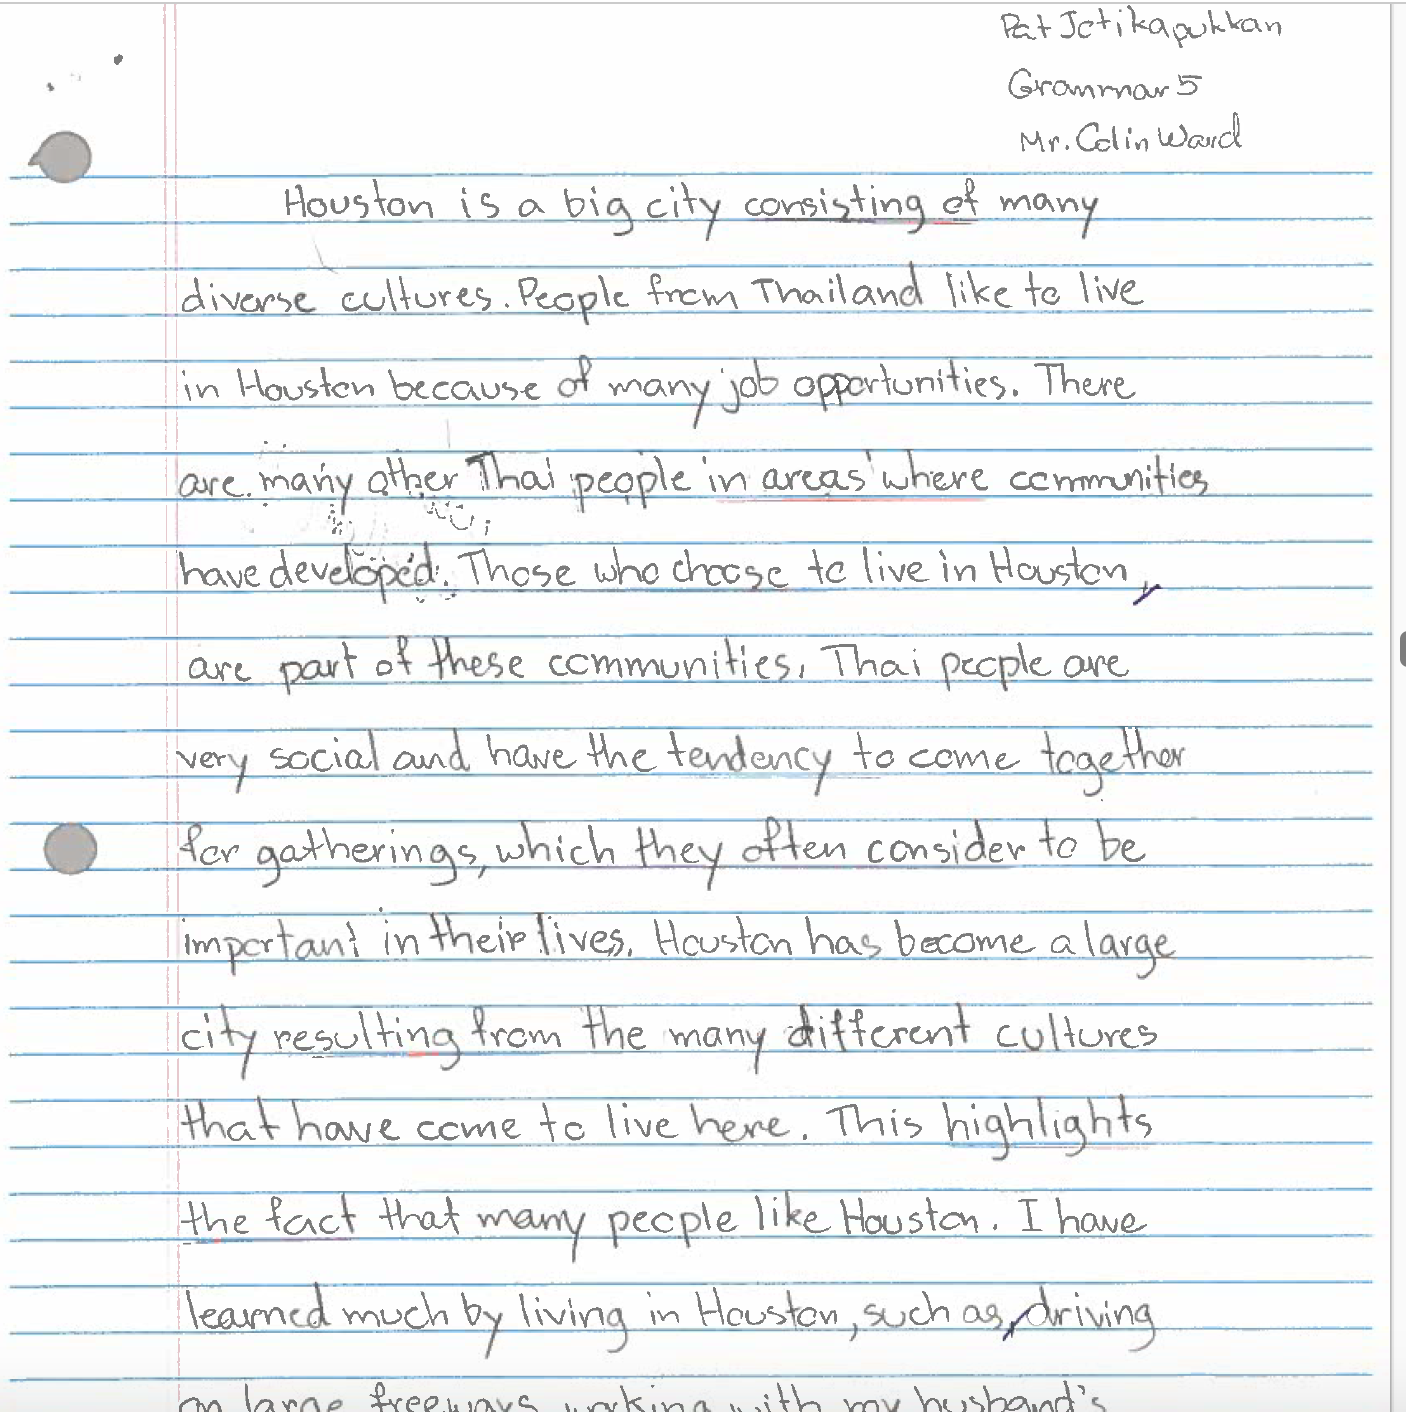 Pat Jotikapukkan
Grammar 5
Mr. Colin Ward
Houston is a big city consisting of many
diverse cultures. People from Thailand like to live
in Houston because of many job opportunities. There
are many other Thai people in areas where communities
have developed. Those who choose to live in Houston,
are part of these communities. Thai people are
very social and have the tendency to come together
for gatherings, which they often consider to be
important in their lives. Houston has become a large
city resulting from the many different cultures
that have come to live here. This highlights
the fact that many people like Houston. I have
learned much by living in Houston, such as, driving
on large freeways, working with my husband's